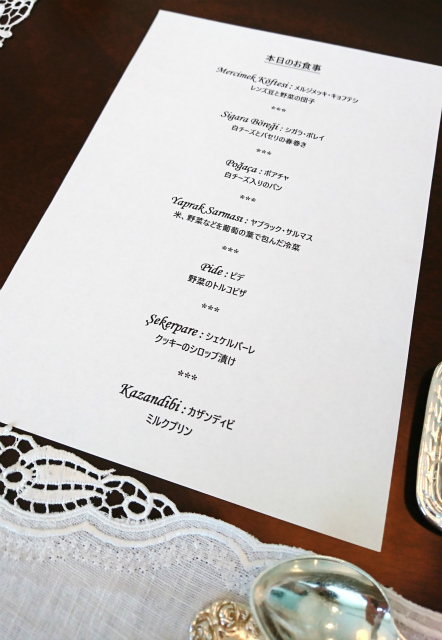 本日のお食事
Mercimek Köftesi : メルジメッキ・キョフテシ
レンズ豆と野菜の団子
***
Sigara Böreği : シガラ・ボレイ
白チーズとパセリの春巻き
***
Poğaça : ポアチャ
白チーズ入りのパン
***
Yaprak Sarması : ヤプラック・サルマス
米、野菜などを葡萄の葉で包んだ冷菜
***
Pide : ピデ
野菜のトルコピザ
***
Şekerpare : シェケルパーレ
クッキーのシロップ漬け
***
Kazandibi : カザンディビ
ミルクプリン